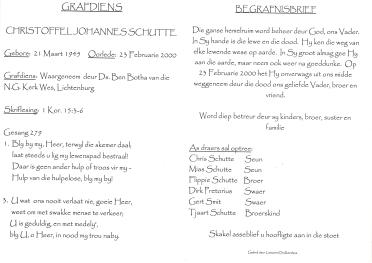 GRAFDIENS
CHRISTOFFEL JOHANNES SCHUTTE
Gebore: 21 Maart 1949 Oorlede: 23 Februarie 2000
Grafdiens: Waargeneem deur Ds. Ben Botha van die
N.G. Kerk Wes, Lichtenburg
Skriflesing: 1 Kor. 15:3-6
Gesang 279
1. Bly by my, Heer, terwyl die skemer daal;
laat steeds u lig my lewenspad bestraal!
Daar is geen ander hulp of troos vir my -
Hulp van die hulpelose, bly my by!
3. U wat ons nooit verlaat nie, goeie Heer,
weet om met swakke mense te verkeer,
U is geduldig, en met medely',
bly U, o Heer, in nood my trou naby.
BEGRAFNISBRIEF
Die ganse hemelruim word beheer deur God, ons Vader.
In Sy hande is die lewe en die dood. Hy ken die weg van
elke lewende wese op aarde. In Sy groot almag gee Hy
aan die aarde, maar neem ook weer na goeddunke. Op
23 Februarie 2000 het Hy onverwags uit ons midde
weggeneem deur die dood ons geliefde Vader, broer en
vriend.
Word diep betreur deur sy kinders, broer, suster en
familie
As draers sal optree:
Chris Schutte Seun
Mias Schutte Seun
Flippie Schutte Broer
Dirk Pretorius Swaer
Gert Smit Swaer
Tjaart Schutte Broerskind
Skakel asseblief u hoofligte aan in die stoet